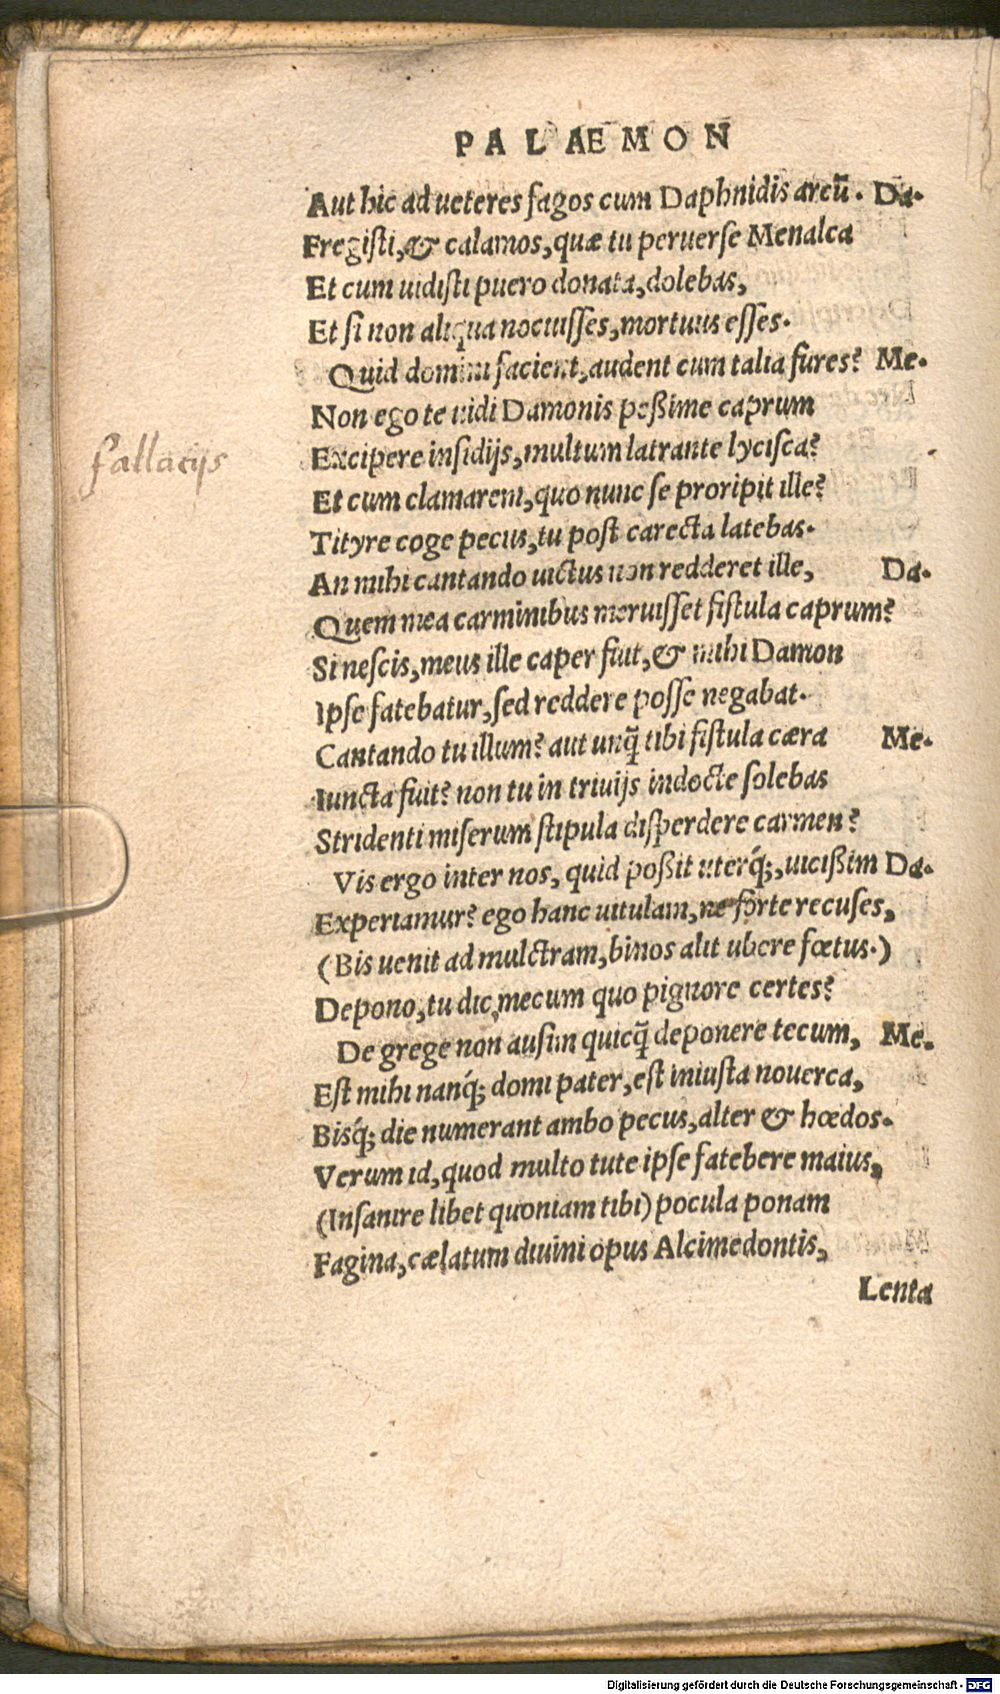 PALÆMON
Aut hic ad ueteres fagos cum Daphnidis arcũ. Da.
Fregisti, & calamos, quæ tu peruerse Menalca
Et cum uidisti puero donata, dolebas,
Et si non aliqua nocuisses, mortuus esses.
Quid domini facient, audent cum talia fures? Me.
Non ego te uidi Damonis peßime caprum
fallacijs
Excipere insidijs, multum latrante lycisca?
Et cum clamarem, quo nunc se proripit ille?
Tityre coge pecus, tu post carecta latebas.
An mihi cantando uictus non redderet ille, Da.
Quem mea carminibus meruisset fistula caprum?
Si nescis, meus ille caper fuit, & mihi Damon
Ipse fatebatur, sed reddere posse negabat.
Cantando tu illum? aut unq̃ tibi fistula cæra Me.
Iuncta fuit? non tu in triuijs indocte solebas
Stridenti miserum stipula disperdere carmen?
Vis ergo inter nos, quid poßit uterq́;, uicißim Da.
Experiamur? ego hanc uitulam, ne forte recuses,
(Bis uenit ad mulctram, binos alit ubere fœtus.)
Depono, tu dic, mecum quo pignore certes?
De grege non ausim quicq̃ deponere tecum, Me.
Est mihi nanq́; domi pater, est iniusta nouerca,
Bisq́; die numerant ambo pecus, alter & hœdos.
Verum id, quod multo tute ipse fatebere maius,
(Insanire libet quoniam tibi) pocula ponam
Fagina, cælatum diuini opus Alcimedontis,
Lenta
Digitalisierung gefördert durch die Deutsche Forschungsgemeinschaft - DFG